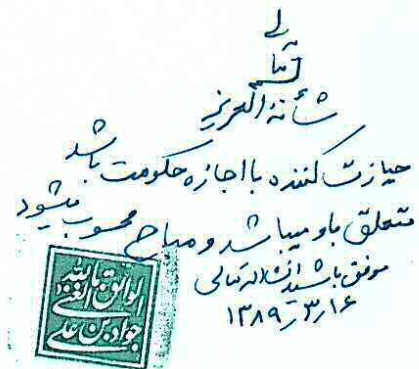 بسمه تعالی
شأنه العزیز
حیازت کننده با اجازه حکومت باشد
متعلق باو میباشد و مباح محسوب میشود
موفق باشید انشاءالله تعالی
۱۳۸۹/۳/۱۶
الواثق بالله
الغنی
جواد بن علی